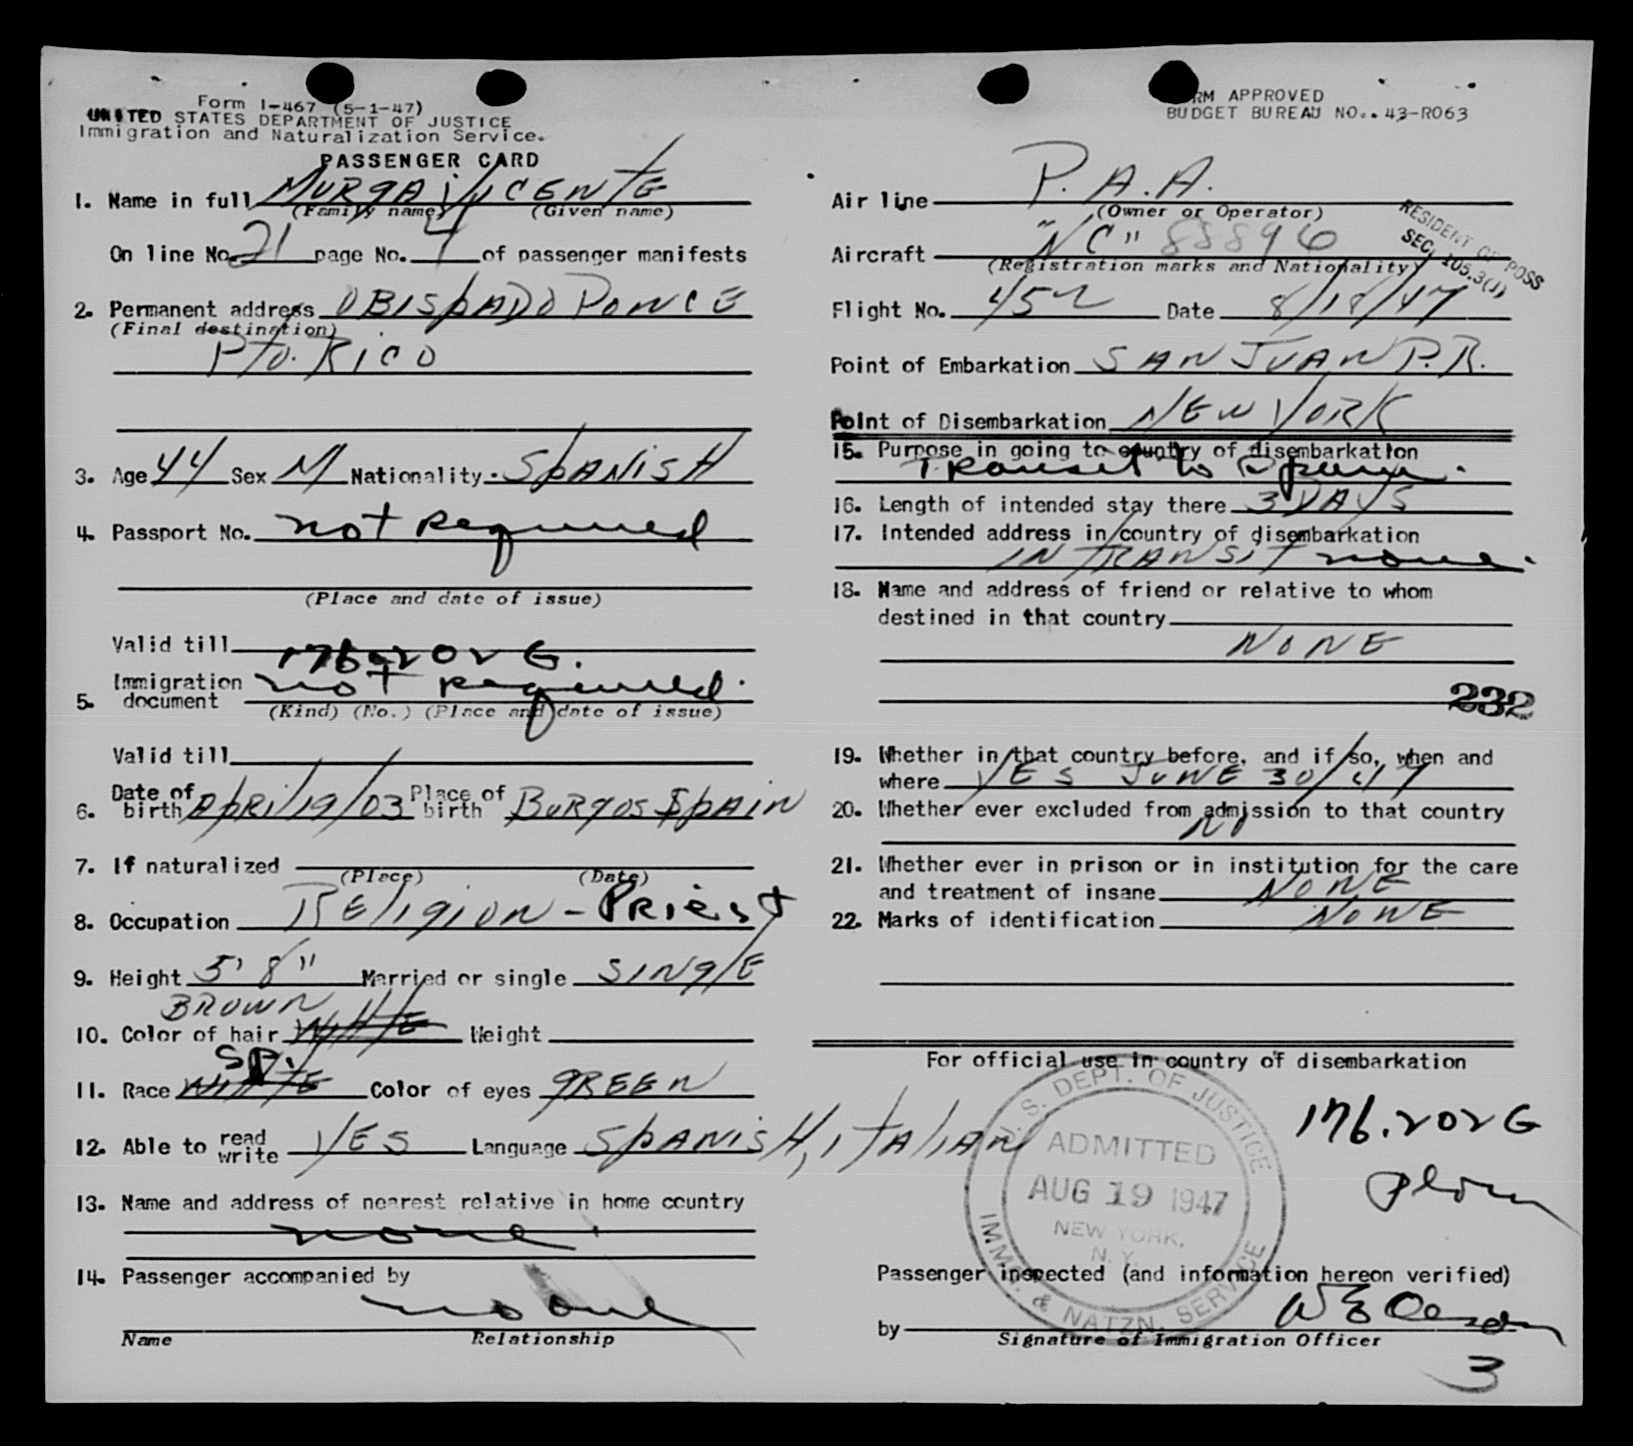 Form I-467 (5-1-47)
UNITED STATES DEPARTMENT OF JUSTICE
Immigration and Naturalization Service.
PASSENGER CARD
1. Name in full MURGA, VICENTE
(Family name) (Given name)
On line No. 21 page No. 4 of passenger manifests
2. Permanent address OBISPADO PONCE
(Final destination)
Pto. Rico
3. Age 44 Sex M Nationality. SPANISH
4. Passport No. not required
(Place and date of issue)
Valid till 176.202 G.
Immigration not required.
5. document
(Kind) (No.) (Place and date of issue)
Valid till
6. Date of birth April 19/03 Place of birth Burgos Spain
7. If naturalized
(Place) (Date)
8. Occupation Religion - Priest
9. Height 5' 8" Married or single SINGLE
BROWN
10. Color of hair WHITE Weight
SP.
11. Race WHITE Color of eyes GREEN
12. Able to read write YES Language SPANISH, ITALIAN
13. Name and address of nearest relative in home country
none
14. Passenger accompanied by
no one
Name Relationship
FORM APPROVED
BUDGET BUREAU NO.. 43-R063
Air line P.A.A.
(Owner or Operator)
RESIDENT OF POSS
SEC. 105.3(J)
Aircraft "NC" 88896
(Registration marks and Nationality)
Flight No. 452 Date 8/18/47
Point of Embarkation SAN JUAN P.R.
Point of Disembarkation NEW YORK
15. Purpose in going to country of disembarkation
Transit to Spain.
16. Length of intended stay there 3 DAYS
17. Intended address in country of disembarkation
IN TRANSIT none.
18. Name and address of friend or relative to whom
destined in that country
NONE
232
19. Whether in that country before, and if so, when and
where YES JUNE 30/47
20. Whether ever excluded from admission to that country
NO
21. Whether ever in prison or in institution for the care
and treatment of insane NONE
22. Marks of identification NONE
For official use in country of disembarkation
U. S. DEPT. OF JUSTICE
ADMITTED
AUG 19 1947
NEW YORK,
N. Y.
IMMG. & NATZN. SERVICE
176.202 G
Passenger inspected (and information hereon verified)
by
Signature of Immigration Officer
3